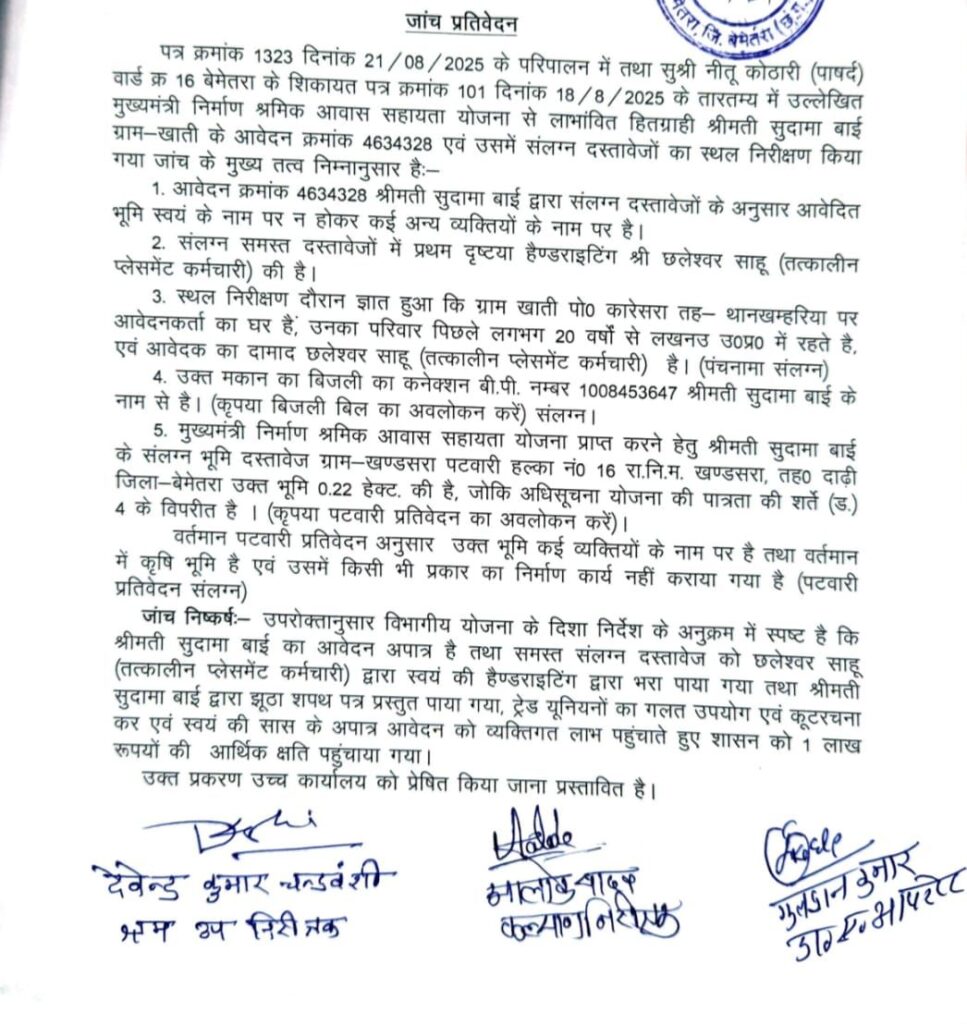 मेतरा, जि. बेमेतरा (छ.ग.)
जांच प्रतिवेदन
पत्र क्रमांक 1323 दिनांक 21/08/2025 के परिपालन में तथा सुश्री नीतू कोठारी (पाषर्द)
वार्ड क्र 16 बेमेतरा के शिकायत पत्र क्रमांक 101 दिनांक 18/8/2025 के तारतम्य में उल्लेखित
मुख्यमंत्री निर्माण श्रमिक आवास सहायता योजना से लाभांवित हितग्राही श्रीमती सुदामा बाई
ग्राम–खाती के आवेदन क्रमांक 4634328 एवं उसमें संलग्न दस्तावेजों का स्थल निरीक्षण किया
गया जांच के मुख्य तत्व निम्नानुसार है:–
1. आवेदन क्रमांक 4634328 श्रीमती सुदामा बाई द्वारा संलग्न दस्तावेजों के अनुसार आवेदित
भूमि स्वयं के नाम पर न होकर कई अन्य व्यक्तियों के नाम पर है।
2. संलग्न समस्त दस्तावेजों में प्रथम दृष्टया हैण्डराइटिंग श्री छलेश्वर साहू (तत्कालीन
प्लेसमेंट कर्मचारी) की है।
3. स्थल निरीक्षण दौरान ज्ञात हुआ कि ग्राम खाती पो0 कारेसरा तह– थानखम्हरिया पर
आवेदनकर्ता का घर है; उनका परिवार पिछले लगभग 20 वर्षो से लखनउ उ0प्र0 में रहते है,
एवं आवेदक का दामाद छलेश्वर साहू (तत्कालीन प्लेसमेंट कर्मचारी) है। (पंचनामा संलग्न)
4. उक्त मकान का बिजली का कनेक्शन बी.पी. नम्बर 1008453647 श्रीमती सुदामा बाई के
नाम से है। (कृपया बिजली बिल का अवलोकन करें) संलग्न।
5. मुख्यमंत्री निर्माण श्रमिक आवास सहायता योजना प्राप्त करने हेतु श्रीमती सुदामा बाई
के संलग्न भूमि दस्तावेज ग्राम–खण्डसरा पटवारी हल्का नं0 16 रा.नि.म. खण्डसरा, तह0 दाढ़ी
जिला–बेमेतरा उक्त भूमि 0.22 हेक्ट. की है, जोकि अधिसूचना योजना की पात्रता की शर्ते (ड.)
4 के विपरीत है । (कृपया पटवारी प्रतिवेदन का अवलोकन करें)।
वर्तमान पटवारी प्रतिवेदन अनुसार उक्त भूमि कई व्यक्तियों के नाम पर है तथा वर्तमान
में कृषि भूमि है एवं उसमें किसी भी प्रकार का निर्माण कार्य नहीं कराया गया है (पटवारी
प्रतिवेदन संलग्न)
जांच निष्कर्षः– उपरोक्तानुसार विभागीय योजना के दिशा निर्देश के अनुक्रम में स्पष्ट है कि
श्रीमती सुदामा बाई का आवेदन अपात्र है तथा समस्त संलग्न दस्तावेज को छलेश्वर साहू
(तत्कालीन प्लेसमेंट कर्मचारी) द्वारा स्वयं की हैण्डराइटिंग द्वारा भरा पाया गया तथा श्रीमती
सुदामा बाई द्वारा झूठा शपथ पत्र प्रस्तुत पाया गया, ट्रेड यूनियनों का गलत उपयोग एवं कूटरचना
कर एवं स्वयं की सास के अपात्र आवेदन को व्यक्तिगत लाभ पहुंचाते हुए शासन को 1 लाख
रूपयों की आर्थिक क्षति पहुंचाया गया।
उक्त प्रकरण उच्च कार्यालय को प्रेषित किया जाना प्रस्तावित है।
देवेन्द्र कुमार चन्द्रवंशी
श्रम उप निरीक्षक
आलोक यादव
कल्याण निरीक्षक
कुमार
आपरेटर